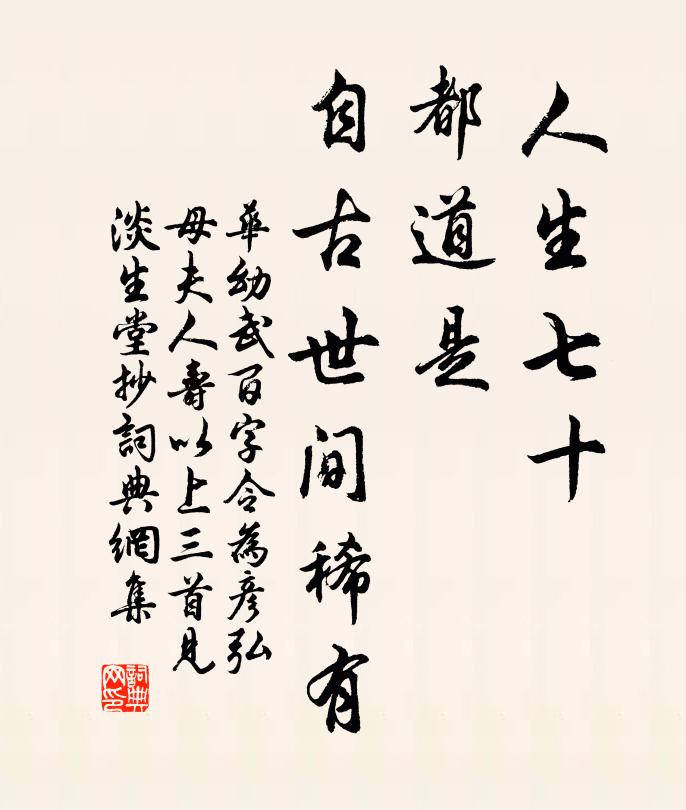 人生七十
都道是
自古世间稀有
華幼武百字令為彦弘
母夫人壽以上三首見
淡生堂抄詞典網集
詞典網印